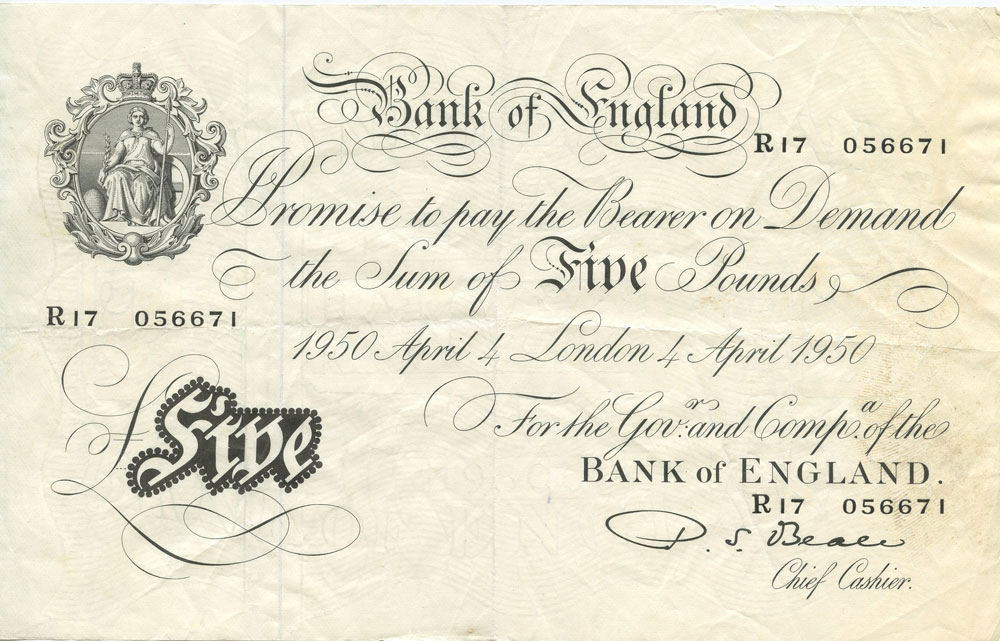 Bank of England
R17 056671
I Promise to pay the Bearer on Demand
the Sum of Five Pounds
1950 April 4 London 4 April 1950
R17 056671
£Five
For the Gov:r and Comp:a of the
BANK of ENGLAND.
R17 056671
P. S. Beale
Chief Cashier.